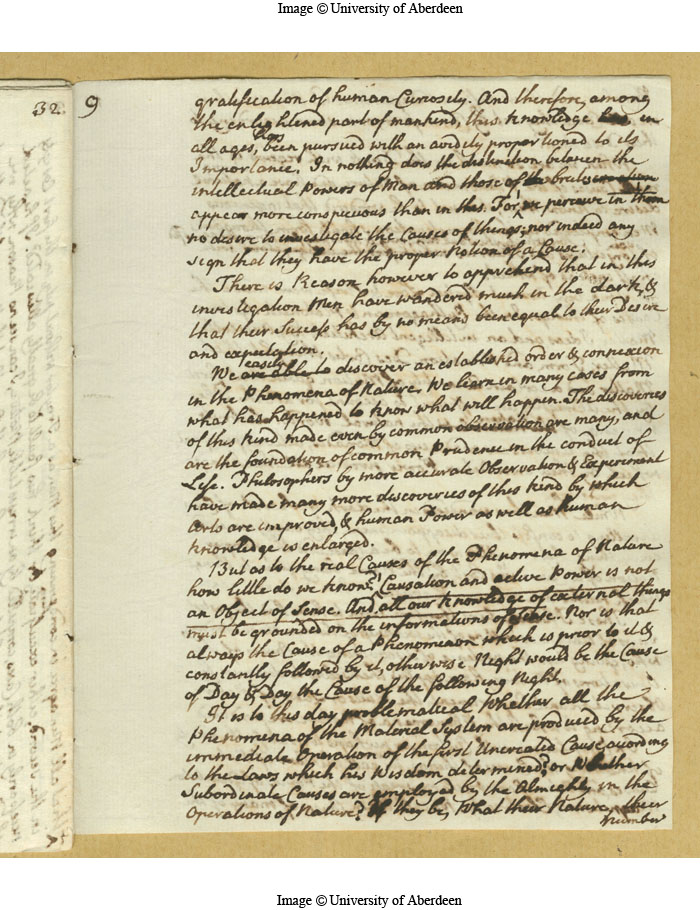 Image © University of Aberdeen
32.
9
gratification of human Curiosity. And therefore, among
the enlightened part of mankind, this knowledge has in
all ages, has been pursued with an avidity proportioned to its
Importance. In nothing does the distinction between the
intellectual Powers of Man and those of the brute
appear more conspicuous than in this. For we perceive in them
no desire to investigate the Causes of things; nor indeed any
sign that they have the proper Notion of a Cause.
There is Reason however to apprehend that in this
investigation Men have wandered much in the dark, &
that their Success has by no means been equal to their Desire
and expectation.
We easily are able to discover an established order & connexion
in the Phenomena of Nature. We learn in many cases from
what has happened to know what will happen. The discoveries
of this kind made even by common observation are many, and
are the foundation of common Prudence in the conduct of
Life. Philosophers by more accurate Observation & Experiment
have made many more discoveries of this kind by which
Arts are improved, & human Power as well as human
knowledge is enlarged.
But as to the real Causes of the Phenomena of Nature
how little do we know? Causation and active Power is not
an Object of Sense. And all our knowledge of external things
must be grounded on the informations of Sense. Nor is that
always the Cause of a Phenomenon which is prior to it &
constantly followed by it, otherwise Night would be the Cause
of Day & Day the Cause of the following Night.
It is to this day problematical Whether all the
Phenomena of the Material System are produced by the
immediate Operation of the first Uncreated Cause, acording
to the Laws which his Wisdom determined? or Whether
Subordinate Causes are employed by the Almighty in the
Operations of Nature? If they be, What their Nature, their
number
Image © University of Aberdeen